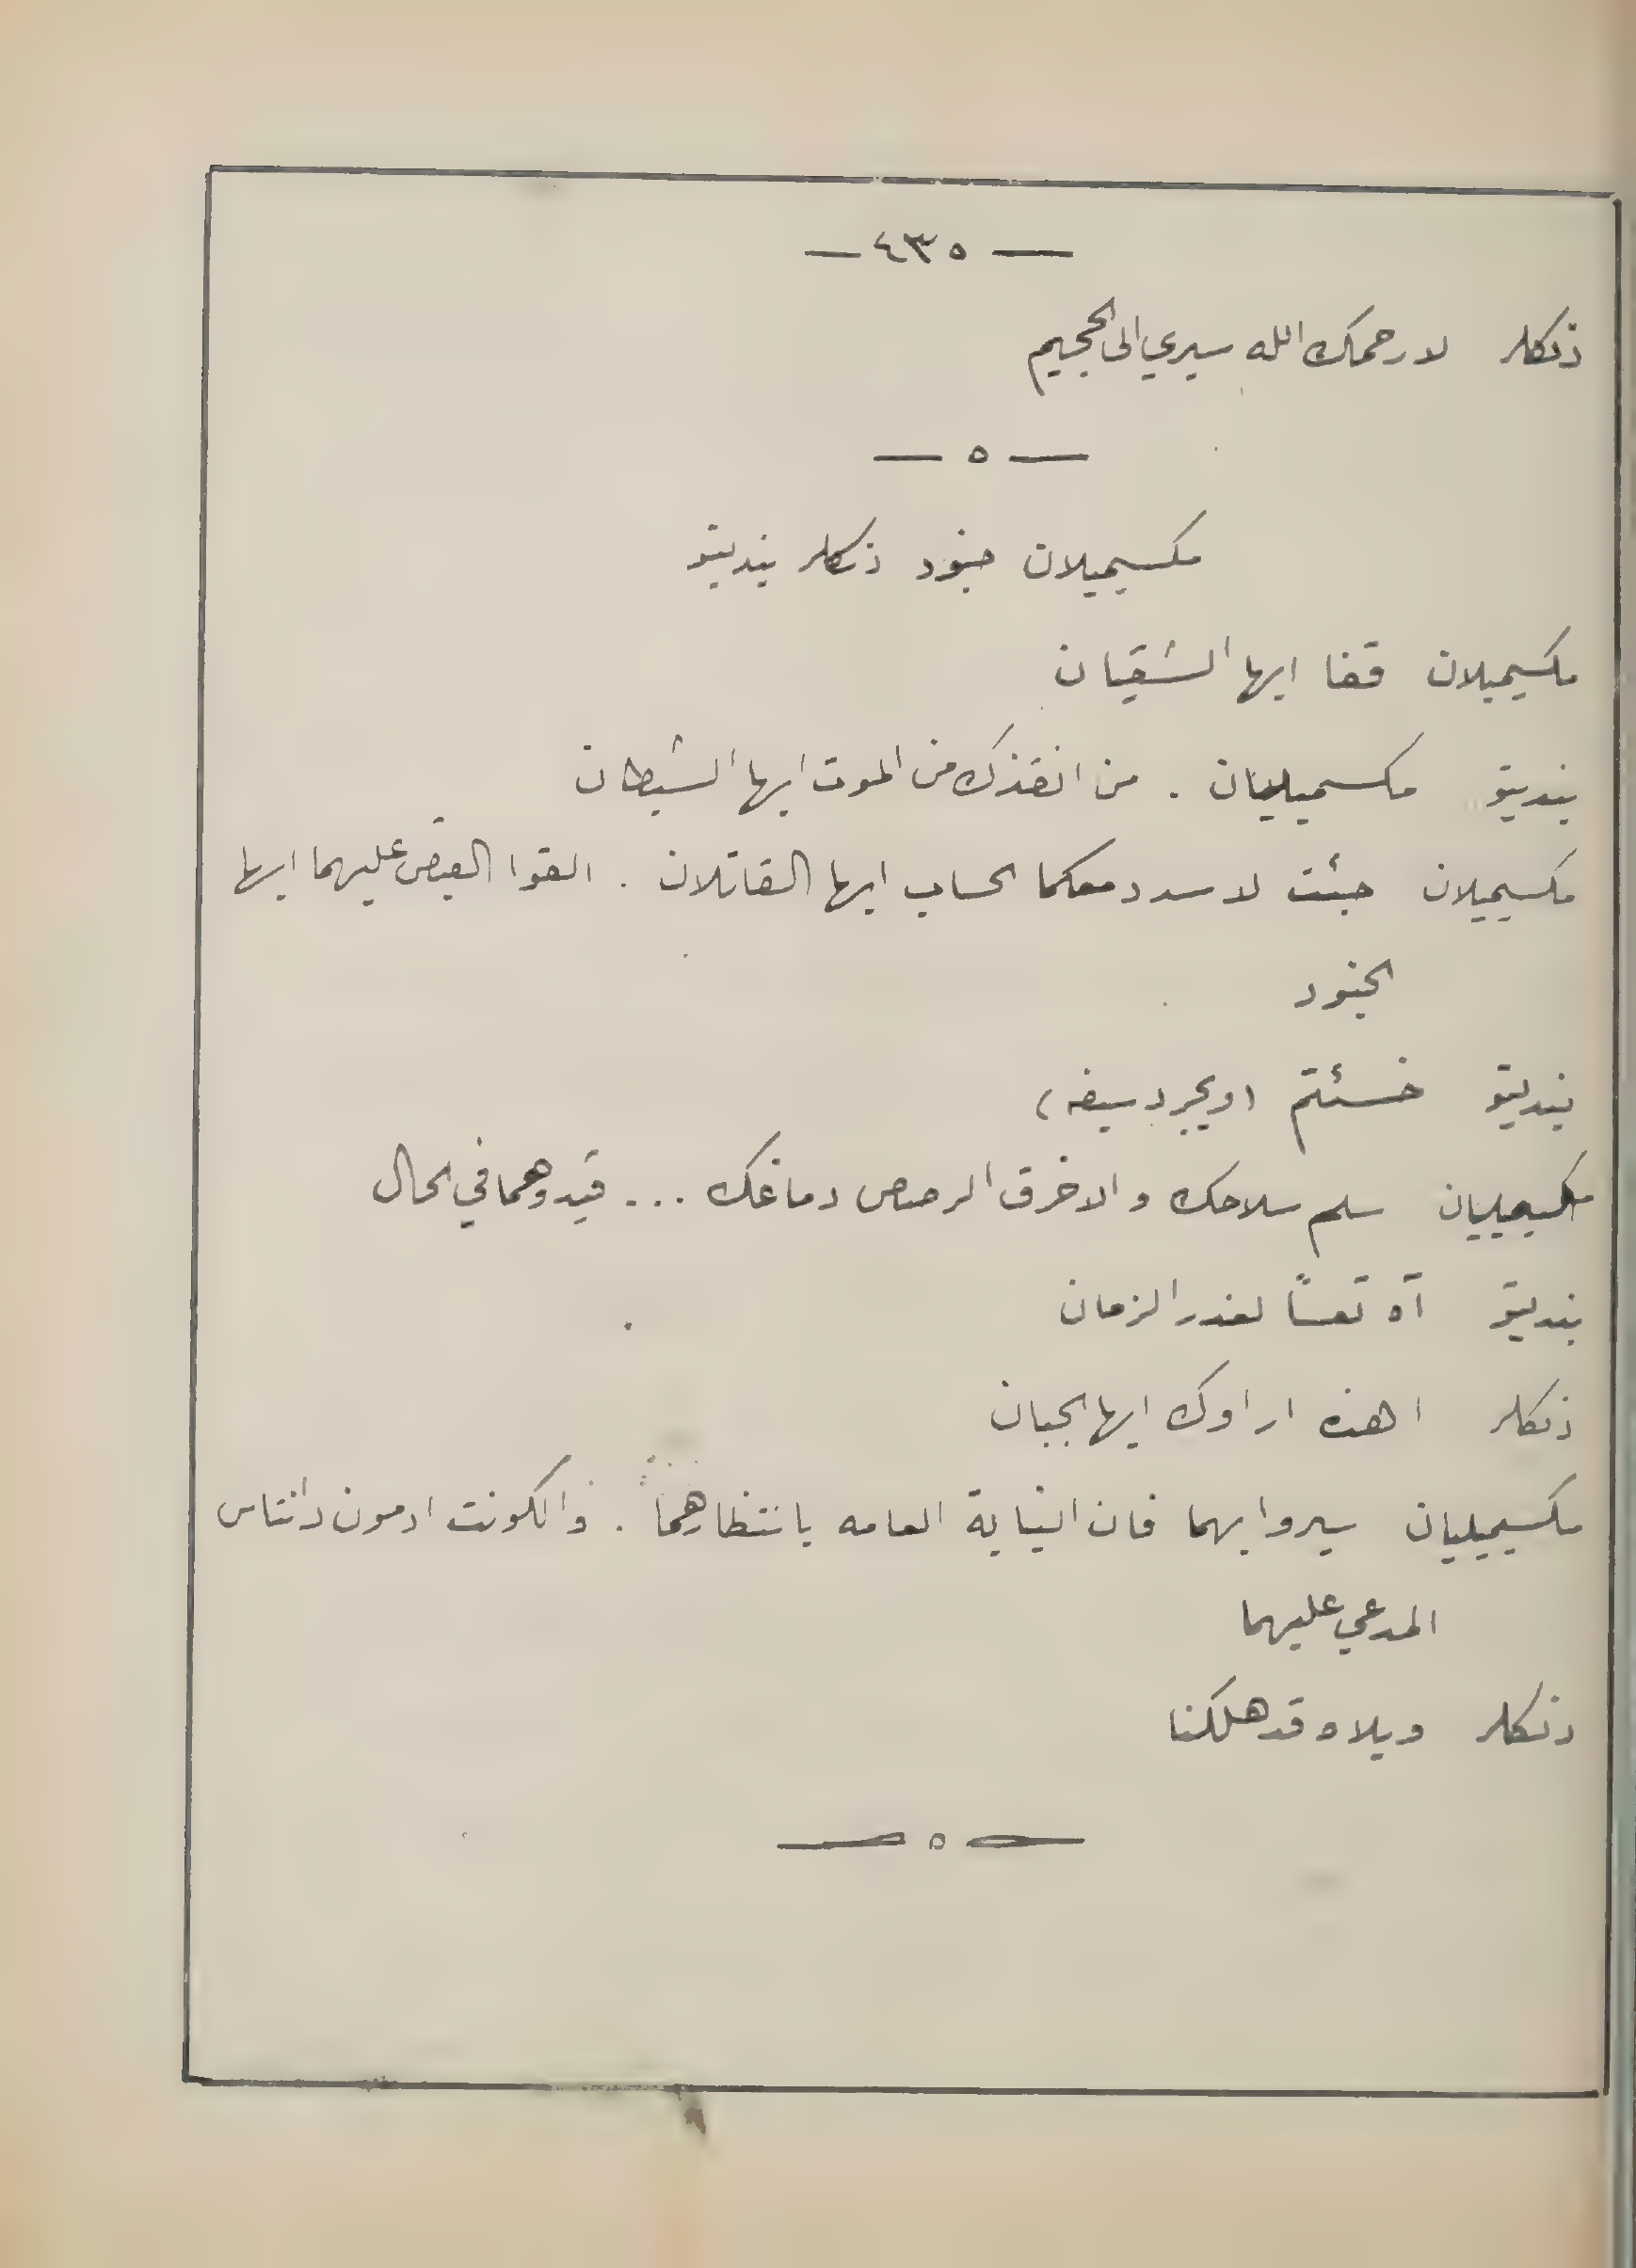 — ٤٣٥ —
ذنكلر لا رحمك الله سيري الى الجحيم
— ٥ —
مكسيميلان جنود ذنكلر بندیتو
مكسيميلان قفا ايها الشقيان
بندیتو مكسيميليان . من انقذك من الموت ايها الشيطان
مكسيميلان جئت لاسدد معكما الحساب ايها القاتلان . القوا القبض عليهما ايها
الجنود
بندیتو خسئتم (ويجرد سيفه)
مكسيميليان سلم سلاحك والا خرق الرصاص دماغك ... قيدوهما في الحال
بندیتو آه تعساً لغدر الزمان
ذنكلر اهذه ايها الجبان
مكسيميليان سيروا بهما فان النيابة العامه بانتظارهما . والكونت ادمون دانتاس
المدعي عليهما
دنكلر ويلاه قد هلكنا
— ٥ —